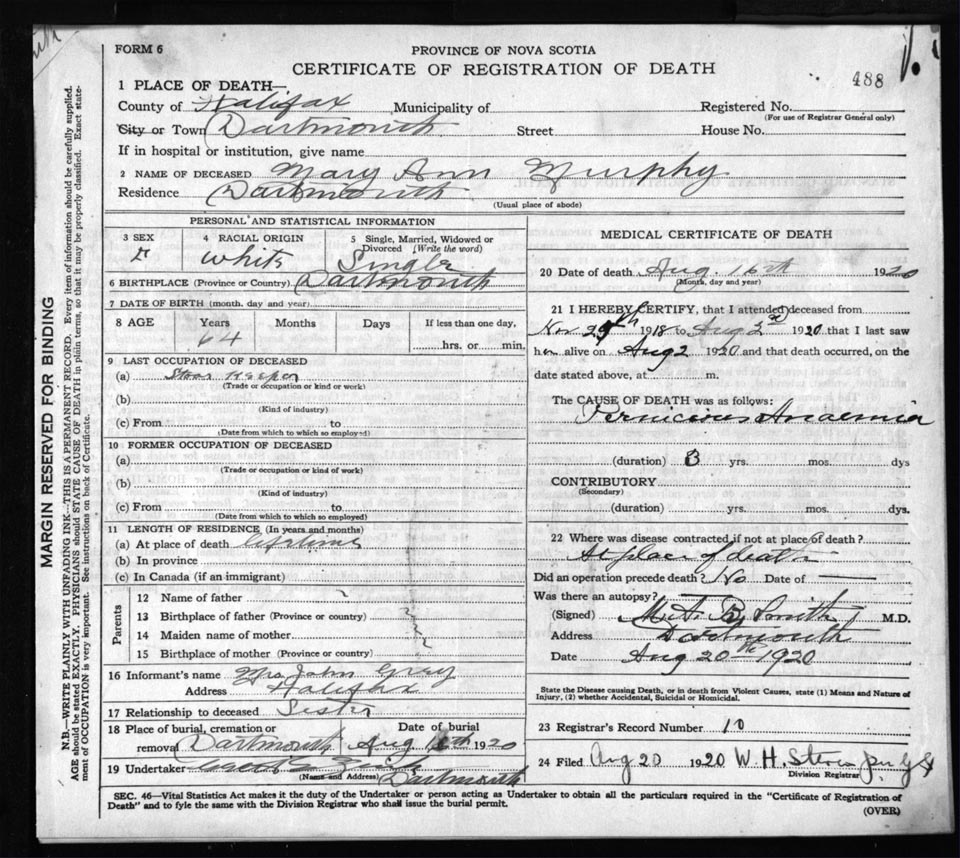 FORM 6
PROVINCE OF NOVA SCOTIA
CERTIFICATE OF REGISTRATION OF DEATH
488
1 PLACE OF DEATH—
County of Halifax Municipality of Registered No.
(For use of Registrar General only)
City or Town Dartmouth Street House No.
If in hospital or institution, give name
2 NAME OF DECEASED Mary Ann Murphy
Residence Dartmouth
(Usual place of abode)
PERSONAL AND STATISTICAL INFORMATION
3 SEX 4 RACIAL ORIGIN 5 Single, Married, Widowed or Divorced (Write the word)
F White Single
6 BIRTHPLACE (Province or Country) Dartmouth
7 DATE OF BIRTH (month, day and year)
8 AGE Years Months Days If less than one day,
64 hrs. or min.
9 LAST OCCUPATION OF DECEASED
(a) Store Keeper
(Trade or occupation or kind or work)
(b)
(Kind of industry)
(c) From to
(Date from which to which so employed)
10 FORMER OCCUPATION OF DECEASED
(a)
(Trade or occupation or kind of work)
(b)
(Kind of industry)
(c) From to
(Date from which to which so employed)
11 LENGTH OF RESIDENCE (In years and months)
(a) At place of death Lifetime
(b) In province
(c) In Canada (if an immigrant)
Parents
12 Name of father
13 Birthplace of father (Province or country)
14 Maiden name of mother
15 Birthplace of mother (Province or country)
16 Informant's name Mrs John Gray
Address Halifax
17 Relationship to deceased Sister
18 Place of burial, cremation or Date of burial
removal Dartmouth Aug 1920
19 Undertaker Dartmouth
(Name and Address)
MEDICAL CERTIFICATE OF DEATH
20 Date of death Aug. 16th 1920
(Month, day and year)
21 I HEREBY CERTIFY, that I attended deceased from
Nov 29th 1918 to Aug 2nd 1920 that I last saw
her alive on Aug 2 1920 and that death occurred, on the
date stated above, at m.
The CAUSE OF DEATH was as follows:
Pernicious Anaemia
(duration) 3 yrs. mos. dys
CONTRIBUTORY
(Secondary)
(duration) yrs. mos. dys.
22 Where was disease contracted if not at place of death?
At place of death
Did an operation precede death? No Date of
Was there an autopsy?
(Signed) M. A. B. Smith M.D.
Address Dartmouth
Date Aug 20th 1920
State the Disease causing Death, or in death from Violent Causes, state (1) Means and Nature of
Injury, (2) whether Accidental, Suicidal or Homicidal.
23 Registrar's Record Number 10
24 Filed Aug 20 1920 W. H.
Division Registrar
SEC. 46—Vital Statistics Act makes it the duty of the Undertaker or person acting as Undertaker to obtain all the particulars required in the "Certificate of Registration of
Death" and to fyle the same with the Division Registrar who shall issue the burial permit.
(OVER)
MARGIN RESERVED FOR BINDING
N.B.—WRITE PLAINLY WITH UNFADING INK—THIS IS A PERMANENT RECORD. Every item of information should be carefully supplied.
AGE should be stated EXACTLY. PHYSICIANS should STATE CAUSE OF DEATH in plain terms, so that it may be properly classified. Exact state-
ment of OCCUPATION is very important. See instructions on back of Certificate.